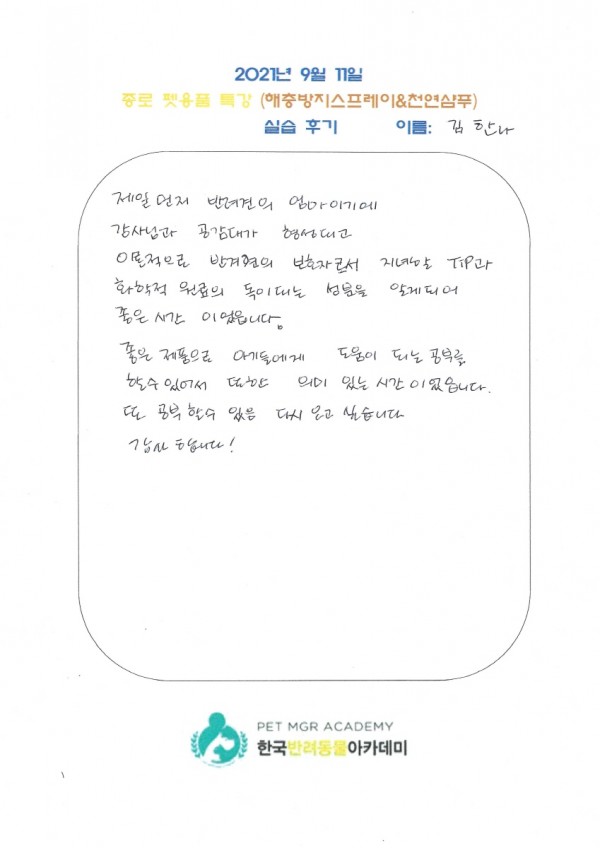 2021년 9월 11일
종로 펫용품 특강 (해충방지스프레이&천연샴푸)
실습 후기 이름: 김한나
제일 먼저 반려견의 엄마이기에
강사님과 공감대가 형성되고
이론적으로 반려견의 보호자로서 지녀야할 TiP과
화학적 원료의 독이되는 성분을 알게되어
좋은 시간 이었습니다.
좋은 제품으로 아기들에게 도움이 되는 공부를
할수 있어서 또한 의미 있는 시간이었습니다.
또 공부 할수 있음 다시 오고 싶습니다
감사 합니다!
PET MGR ACADEMY
한국반려동물아카데미